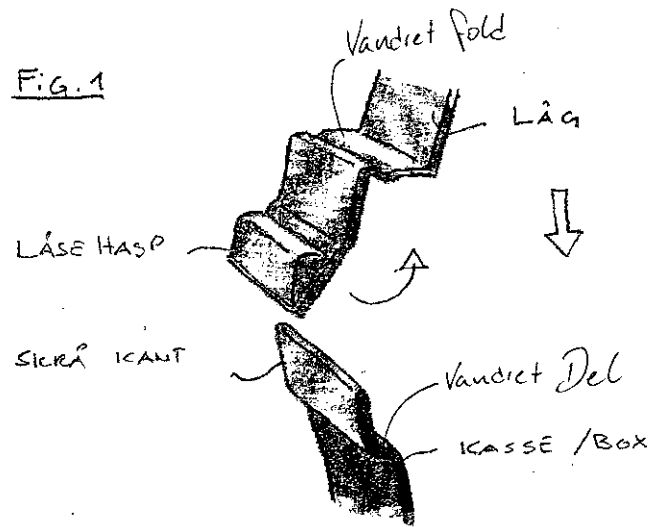 Vandret fold
Fig. 1
LÅG
LÅSE HASP
SKRÅ KANT
Vandret Del
KASSE / BOX